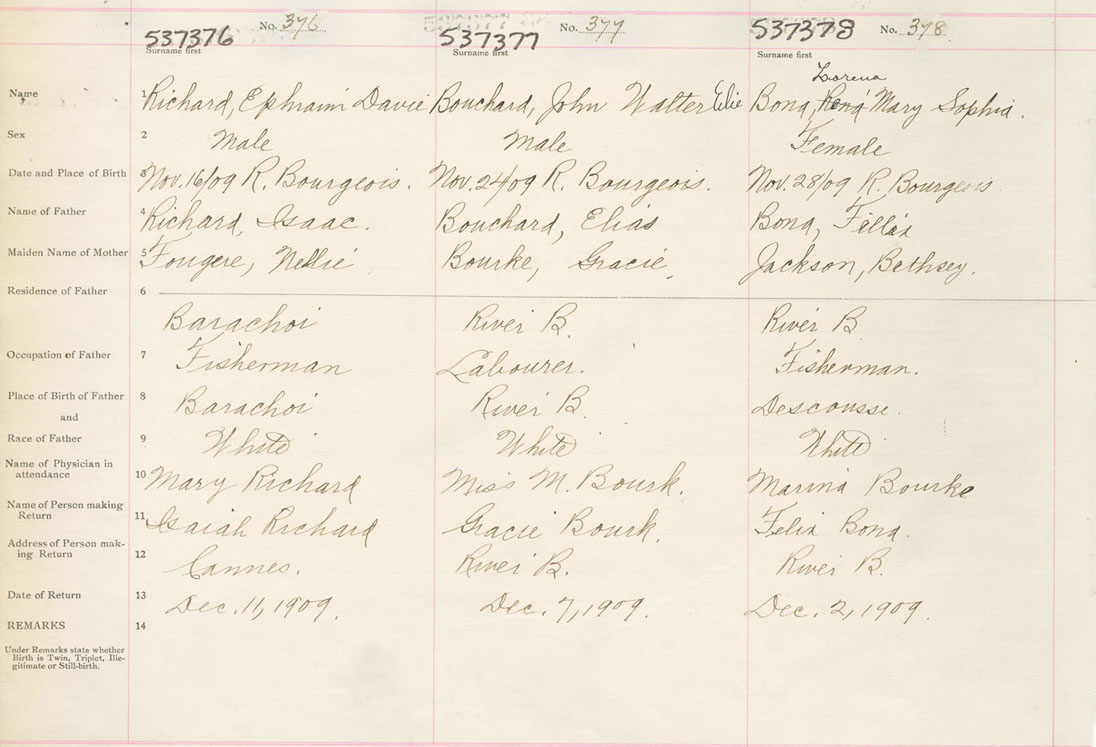 537376 No. 376 537377 No. 377 537378 No. 378
Surname first Surname first Surname first
Lorena
Name 1 Richard, Ephraim Davie Bouchard, John Walter Elie Bona, Rena Mary Sophia.
Sex 2 Male Male Female
Date and Place of Birth 3 Nov. 16/09 R. Bourgeois. Nov. 24/09 R. Bourgeois. Nov. 28/09 R. Bourgeois.
Name of Father 4 Richard, Isaac. Bouchard, Elias Bona, Fillix
Maiden Name of Mother 5 Fougere, Nellie Bourke, Gracie. Jackson, Bethsey.
Residence of Father 6
Barachoi River B. River B
Occupation of Father 7 Fisherman Labourer. Fisherman.
Place of Birth of Father 8 Barachoi River B. Descousse.
and
Race of Father 9 White White White
Name of Physician in
attendance 10 Mary Richard Miss M. Bourk. Marina Bourke
Name of Person making
Return 11 Isaiah Richard Gracie Bourk. Felix Bona.
Address of Person mak-
ing Return 12 Cannes. River B. River B.
Date of Return 13 Dec. 11, 1909. Dec. 7, 1909. Dec. 2, 1909.
REMARKS 14
Under Remarks state whether
Birth is Twin, Triplet, Ille-
gitimate or Still-birth.